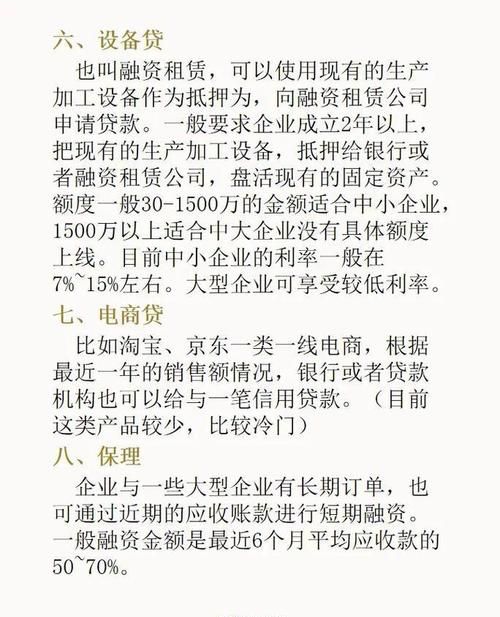 六、设备贷
也叫融资租赁，可以使用现有的生产
加工设备作为抵押为，向融资租赁公司
申请贷款。一般要求企业成立2年以上，
把现有的生产加工设备，抵押给银行或
者融资租赁公司，盘活现有的固定资产。
额度一般30-1500万的金额适合中小企业，
1500万以上适合中大企业没有具体额度
上线。目前中小企业的利率一般在
7%~15%左右。大型企业可享受较低利率。
七、电商贷
比如淘宝、京东一类一线电商，根据
最近一年的销售额情况，银行或者贷款
机构也可以给与一笔信用贷款。（目前
这类产品较少，比较冷门）
八、保理
企业与一些大型企业有长期订单，也
可通过近期的应收账款进行短期融资。
一般融资金额是最近6个月平均应收款的
50~70%。